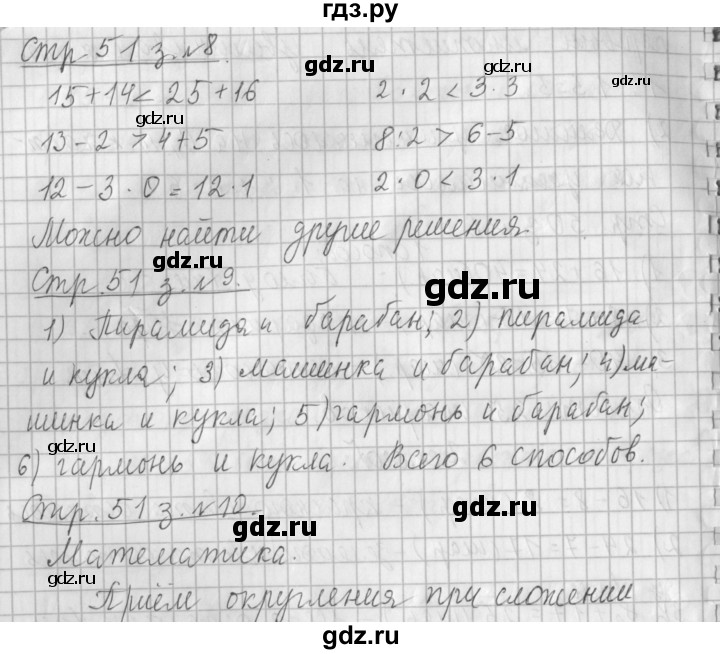 гдз.ру
Стр 51 з. №8.
15+14 < 25+16 2 · 2 < 3 · 3
13 - 2 > 4+5 8:2 > 6-5
12 - 3 · 0 = 12 · 1 2 · 0 < 3 · 1
Можно найти другие решения
Стр. 51 з. №9.
1) Пирамида и барабан; 2) пирамида
и кукла; 3) машинка и барабан; 4) ма-
шинка и кукла; 5) гармонь и барабан;
6) гармонь и кукла. Всего 6 способов.
Стр. 51 з. №10.
Математика.
Приём округления при сложении
gdz.ru
gdz.ru
gdz.ru
gdz.ru
gdz.ru
gdz.ru
gdz.ru
gdz.ru
gdz.ru
gdz.ru
gdz.ru
gdz.ru
gdz.ru
gdz.ru